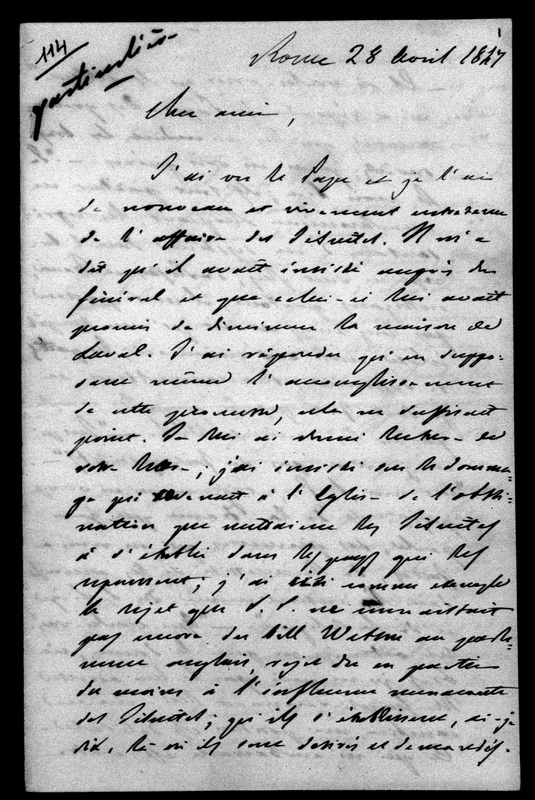 114
particulière
1
Rome 28 avril 1847
Cher ami,
J'ai vu le Pape et je l'ai
de nouveau et vivement entretenu
de l'affaire des Jésuites. Il m'a
dit qu'il avait insisté auprès du
Général et que celui-ci lui avait
promis de diminuer la maison de
Laval. J'ai répondu qu'en suppo-
sant même l'accomplissement
de cette promesse, cela ne suffisait
point. Je lui ai donné lecture de
votre lettre ; j'ai insisté sur le domma-
ge qui revenait à l'Eglise de l'obsti-
nation que mettaient les Jésuites
à s'établir dans les pays qui les
repoussent ; j'ai cité comme exemple
le rejet que S. S. ne connaissait
pas encore du bill Watson au parle-
ment anglais, rejet dû en partie
du moins à l'influence renaissante
des Jésuites ; qu'ils s'établissent, ai-je
dit, là où ils sont désirés et demandés.